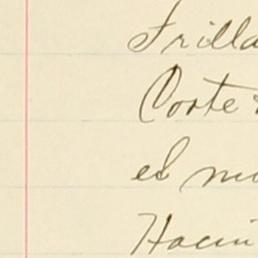 Trilla
Corte
el mu
Hacin